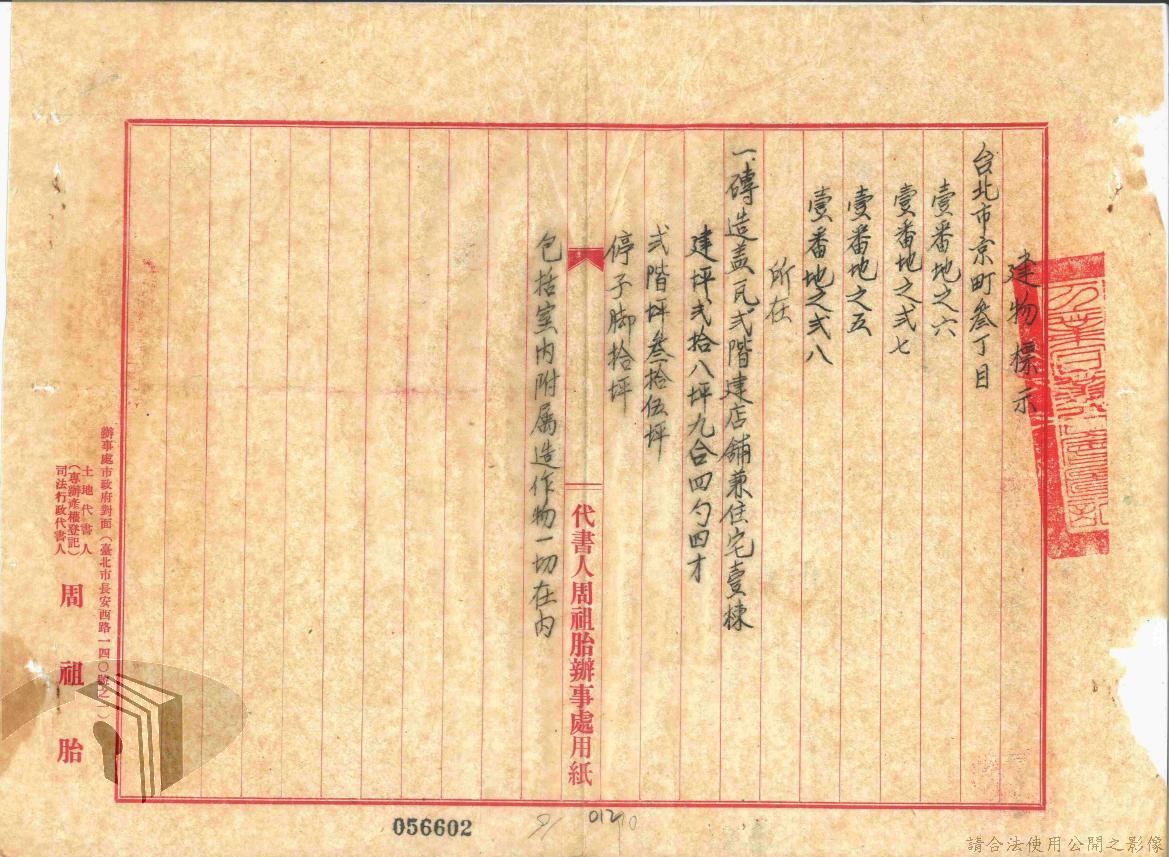 建物標示
台北市京町叁丁目
壹番地之六
壹番地之弍七
壹番地之五
壹番地之弍八
所在
一、磚造盖瓦弍階建店舖兼住宅壹棟
建坪弍拾八坪九合四勺四才
弍階坪叁拾伍坪
停子脚拾坪
包括室内附属造作物一切在内
代書人周祖胎辦事處用紙
辦事處市政府對面(臺北市長安西路一四〇號之一)
土地代書人
(專辦產權登記)
司法行政代書人
周祖胎
056602
請合法使用公開之影像